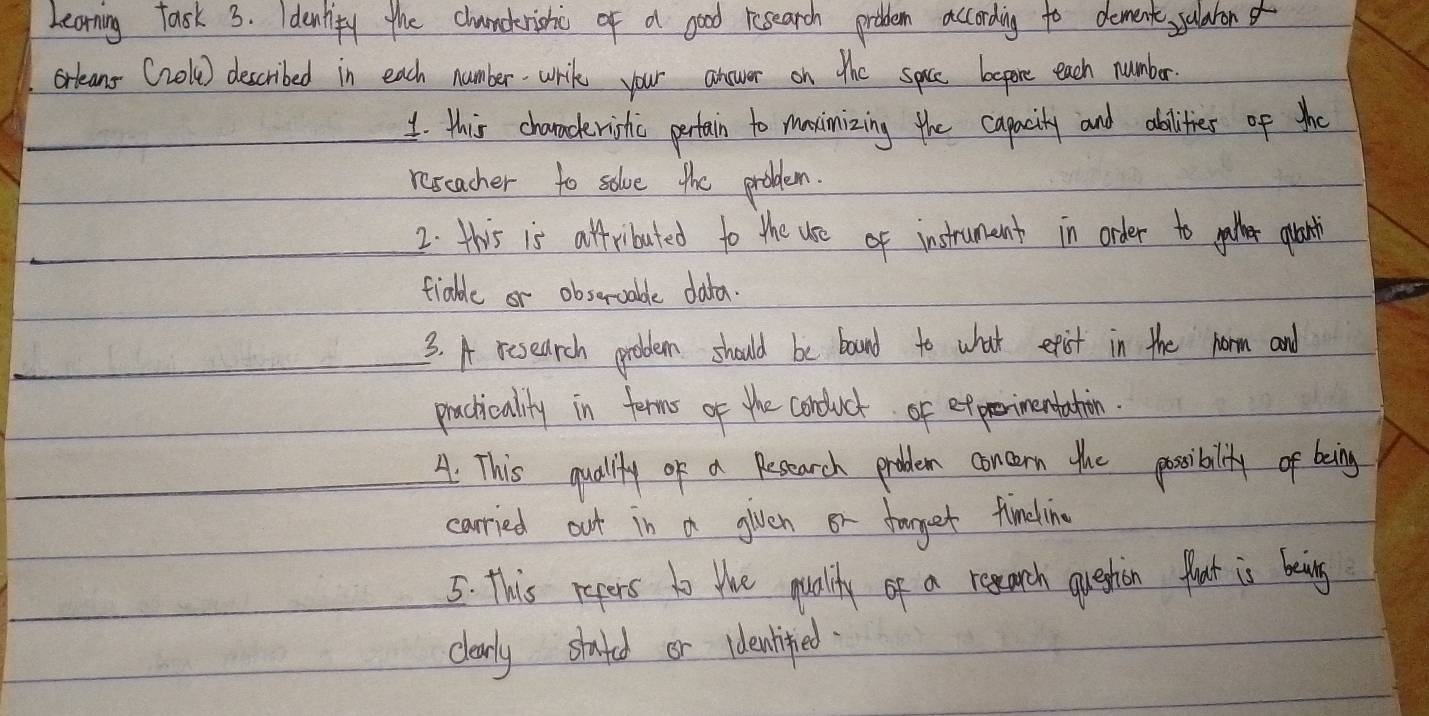 Learning Task 3. Identify the characteristic of a good research problem according to demente, salaton &
orleans (2016) described in each number. write your answer on the space before each number.
1. this characteristic pertain to maximizing the capacity and abilities of the
rescacher to solve the problem.
2. this is attributed to the use of instrument in order to gather quanti
fiable or observable data.
3. A research problem should be bound to what exist in the norm and
practicality in terms of the conduct of experimentation.
4. This quality of a Research problem concern the possibility of being
carried out in a given or target timeline
5. This refers to the quality of a research question that is being
clearly stated or identified.